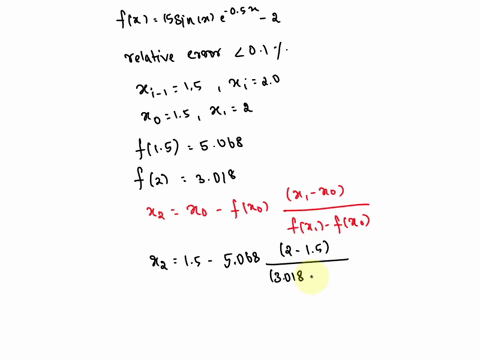 f(x) = 15sin(x) e^-0.5x - 2
relative error < 0.1 %.
x_i-1 = 1.5 , x_i = 2.0
x_0 = 1.5 , x_1 = 2
f(1.5) = 5.068
f(2) = 3.018
x_2 = x_0 - f(x_0) (x_1 - x_0) / f(x_1) - f(x_0)
x_2 = 1.5 - 5.068 (2 - 1.5) / (3.018 -